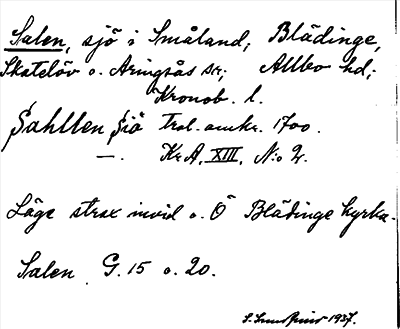 Salen, sjö i Småland; Blädinge,
Skatelöv o. Aringsås sr; Allbo hd;
Kronob. l.
Sahllen Siö Trol. omkr. 1700.
—. Kr.A. XIII, N:o 2.
Läge strax invid o. Ö Blädinge kyrka.
Salen G. 15 o. 20.
1937.